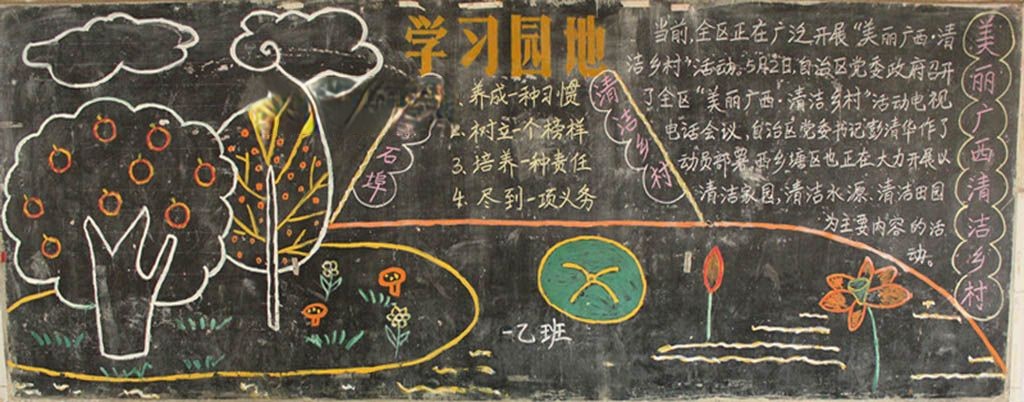 学习园地
1.养成一种习惯
2.树立一个榜样
3.培养一种责任
4.尽到一项义务
石埠
清洁乡村
当前,全区正在广泛开展“美丽广西·清
洁乡村”活动。5月2日,自治区党委政府召开
了全区“美丽广西·清洁乡村”活动电视
电话会议,自治区党委书记彭清华作了
动员部署。西乡塘区也正在大力开展以
清洁家园,清洁水源、清洁田园
为主要内容的活
动。
美丽广西清洁乡村
一乙班